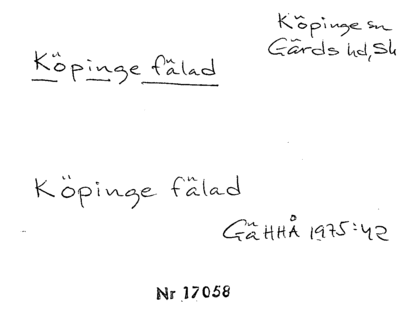 Köpinge sn
Gärds hd, Sk
Köpinge fälad
Köpinge fälad
GäHHÅ 1975:42
Nr 17058